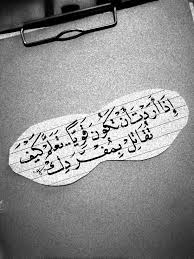 إِذَا أَرَدْتَ أَنْ تَكُونَ قَوِيًّا.. تَعَلَّمْ كَيْفَ
تُقَاتِلُ بِمُفْرَدِكَ